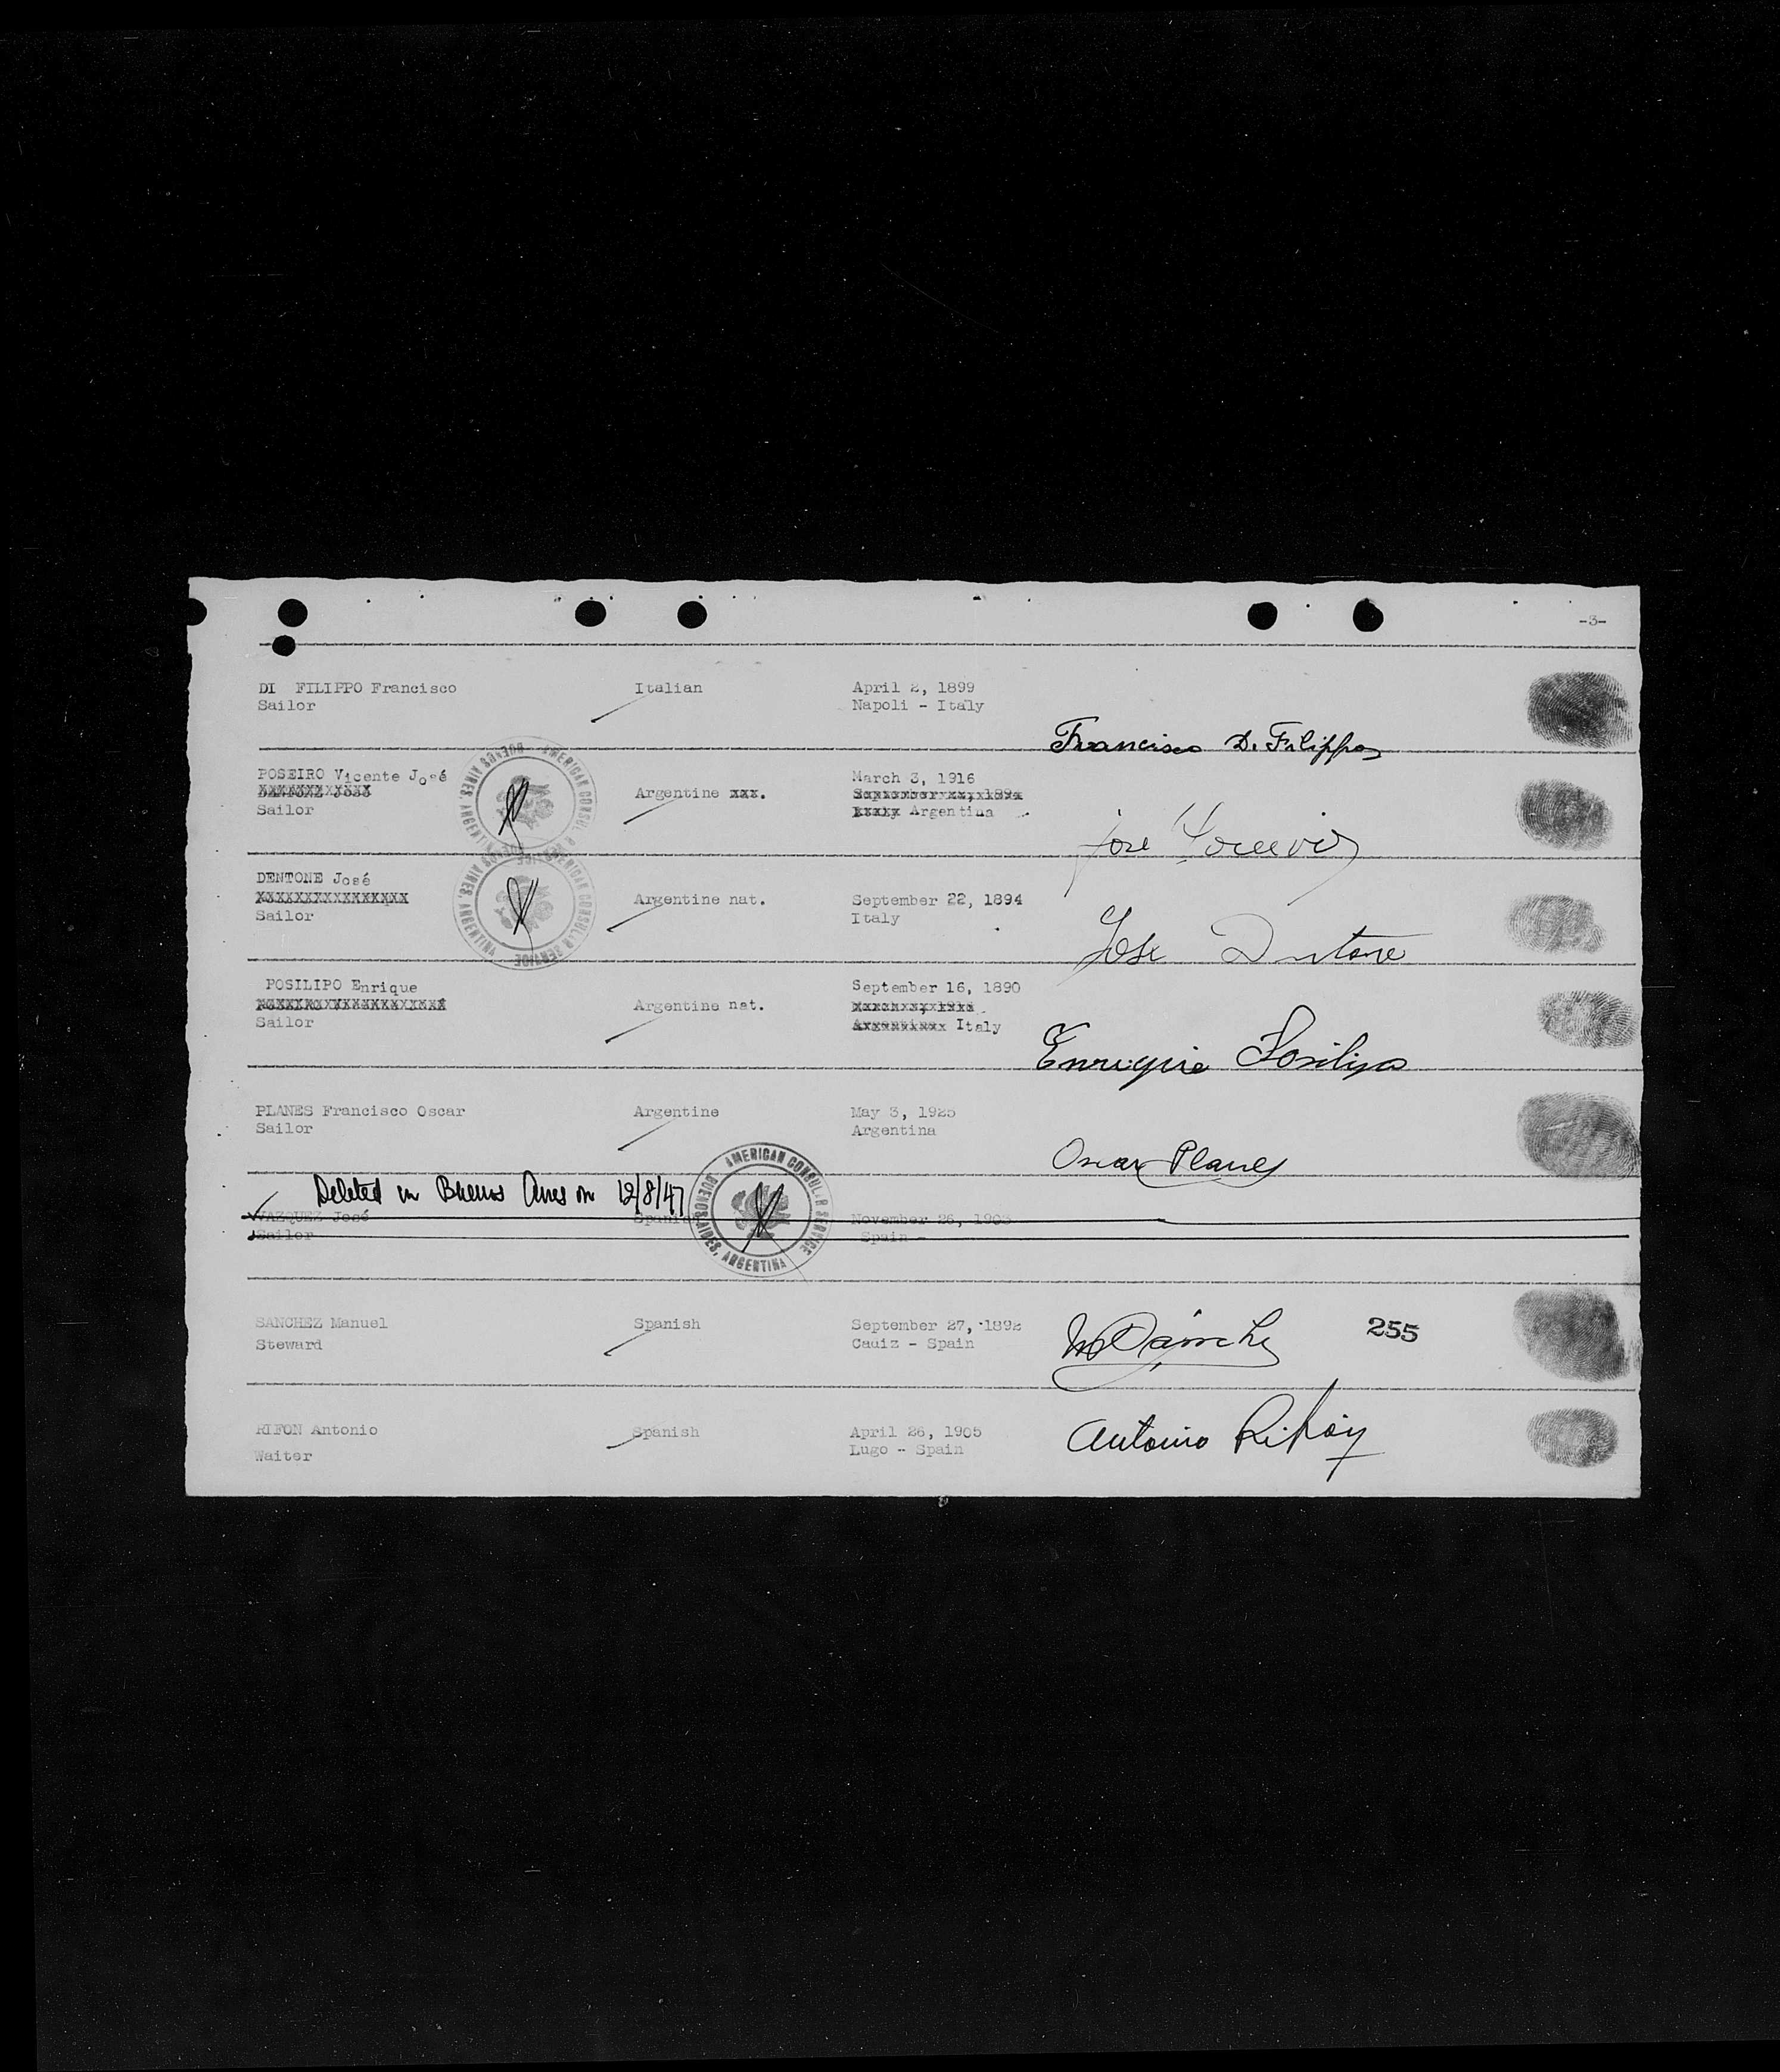 -3-
DI FILIPPO Francisco Italian April 2, 1899
Sailor Napoli - Italy
Francisco D. Filippo
POSEIRO Vicente José March 3, 1916
DENTONE José Argentine xxx. September xx, 1894
Sailor xxxxx Argentina
José
AMERICAN CONSULAR SERVICE
BUENOS AIRES, ARGENTINA
DENTONE José
XXXXXXXXXXXXXXXX Argentine nat. September 22, 1894
Sailor Italy
José Dentone
AMERICAN CONSULAR SERVICE
BUENOS AIRES, ARGENTINA
POSILIPO Enrique September 16, 1890
Argentine nat.
Sailor Italy
Enrique Posilipo
PLANES Francisco Oscar Argentine May 3, 1925
Sailor Argentina
Oscar Planes
Deleted in Buenos Aires on 12/8/47
VAZQUEZ José Spanish November 26, 1903
Sailor Spain -
AMERICAN CONSULAR SERVICE
BUENOS AIRES, ARGENTINA
SANCHEZ Manuel Spanish September 27, 1892
Steward Cadiz - Spain
M Sánchez 255
RIFON Antonio Spanish April 26, 1905
Waiter Lugo - Spain
Antonio Rifón